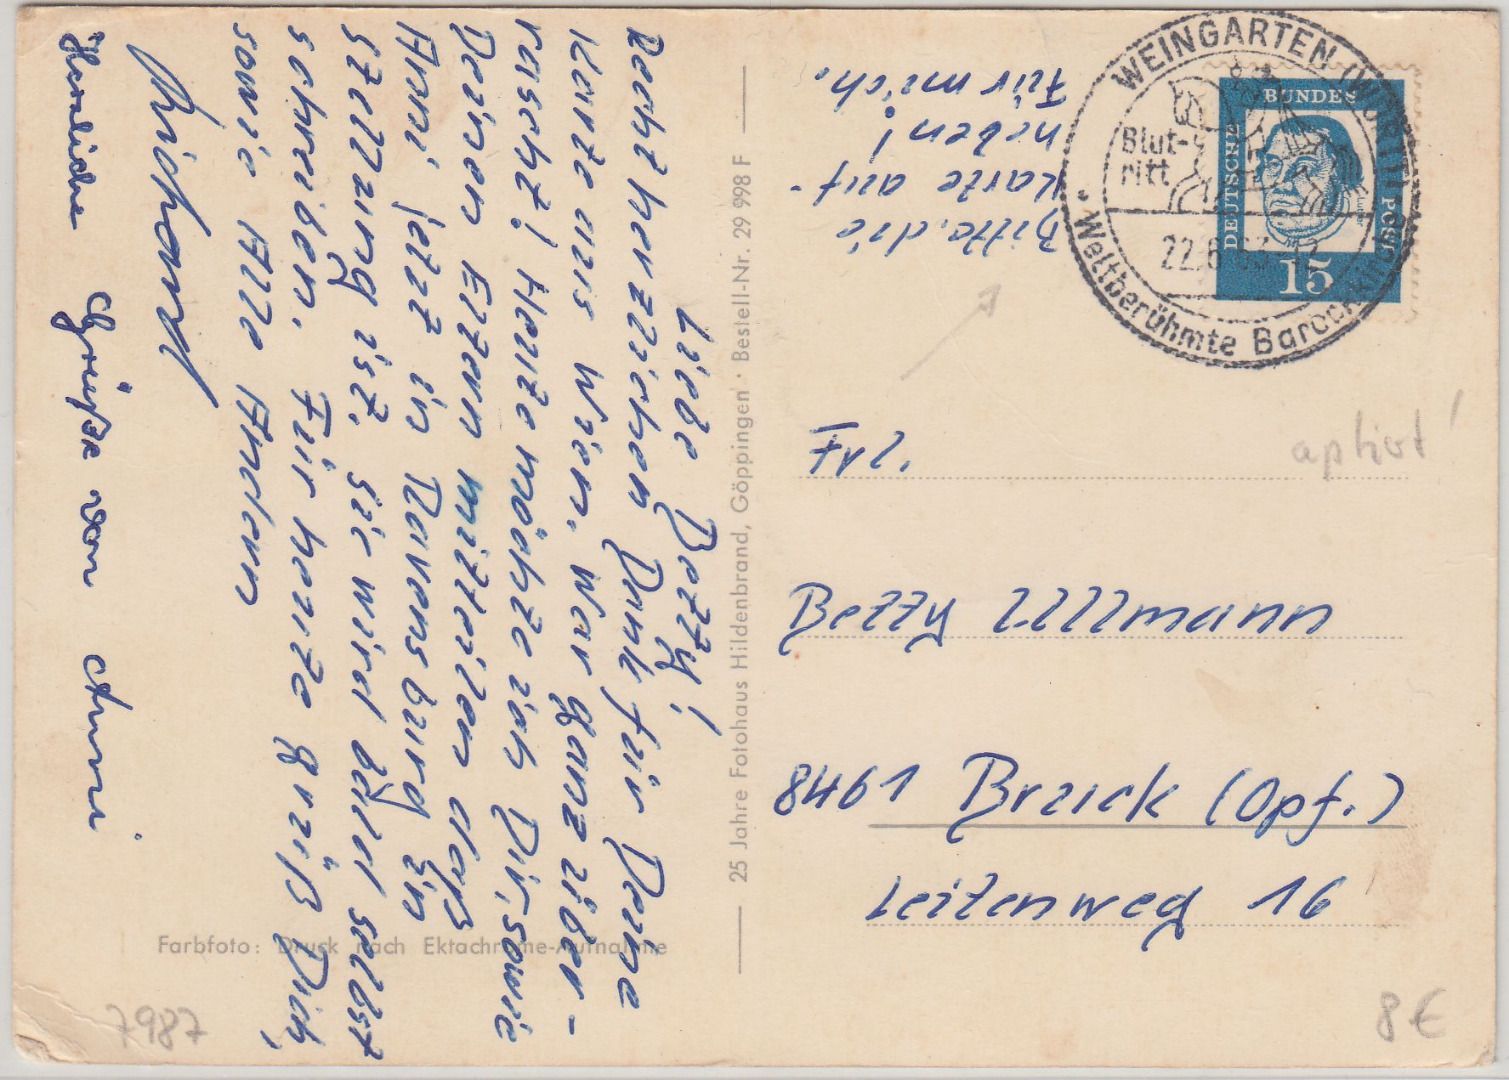 Liebe Betty!
Recht herzlichen Dank für Deine
Karte aus Wien. War ganz über-
rascht! Heute möchte ich Dir, sowie
Deinen Eltern mitteilen daß
Anni jetzt in Ravensburg in
Stellung ist. Sie wird bald selbst
schreiben. Für heute grüß Dich,
sowie Alle Andern
Richard
Herzliche Grüße von Anni
Bitte, die
Karte auf-
heben!
Für mich.
25 Jahre Fotohaus Hildenbrand, Göppingen · Bestell-Nr. 29 998 F
Farbfoto: Druck nach Ektachrome-Aufnahme
WEINGARTEN (WÜRTT)
Blut-
ritt
22.6.
Weltberühmte Barockkirche
DEUTSCHE
BUNDES
POST
15
aptiert!
Frl.
Betty Ullmann
8461 Bruck (Opf.)
Leitenweg 16
7987
8 €